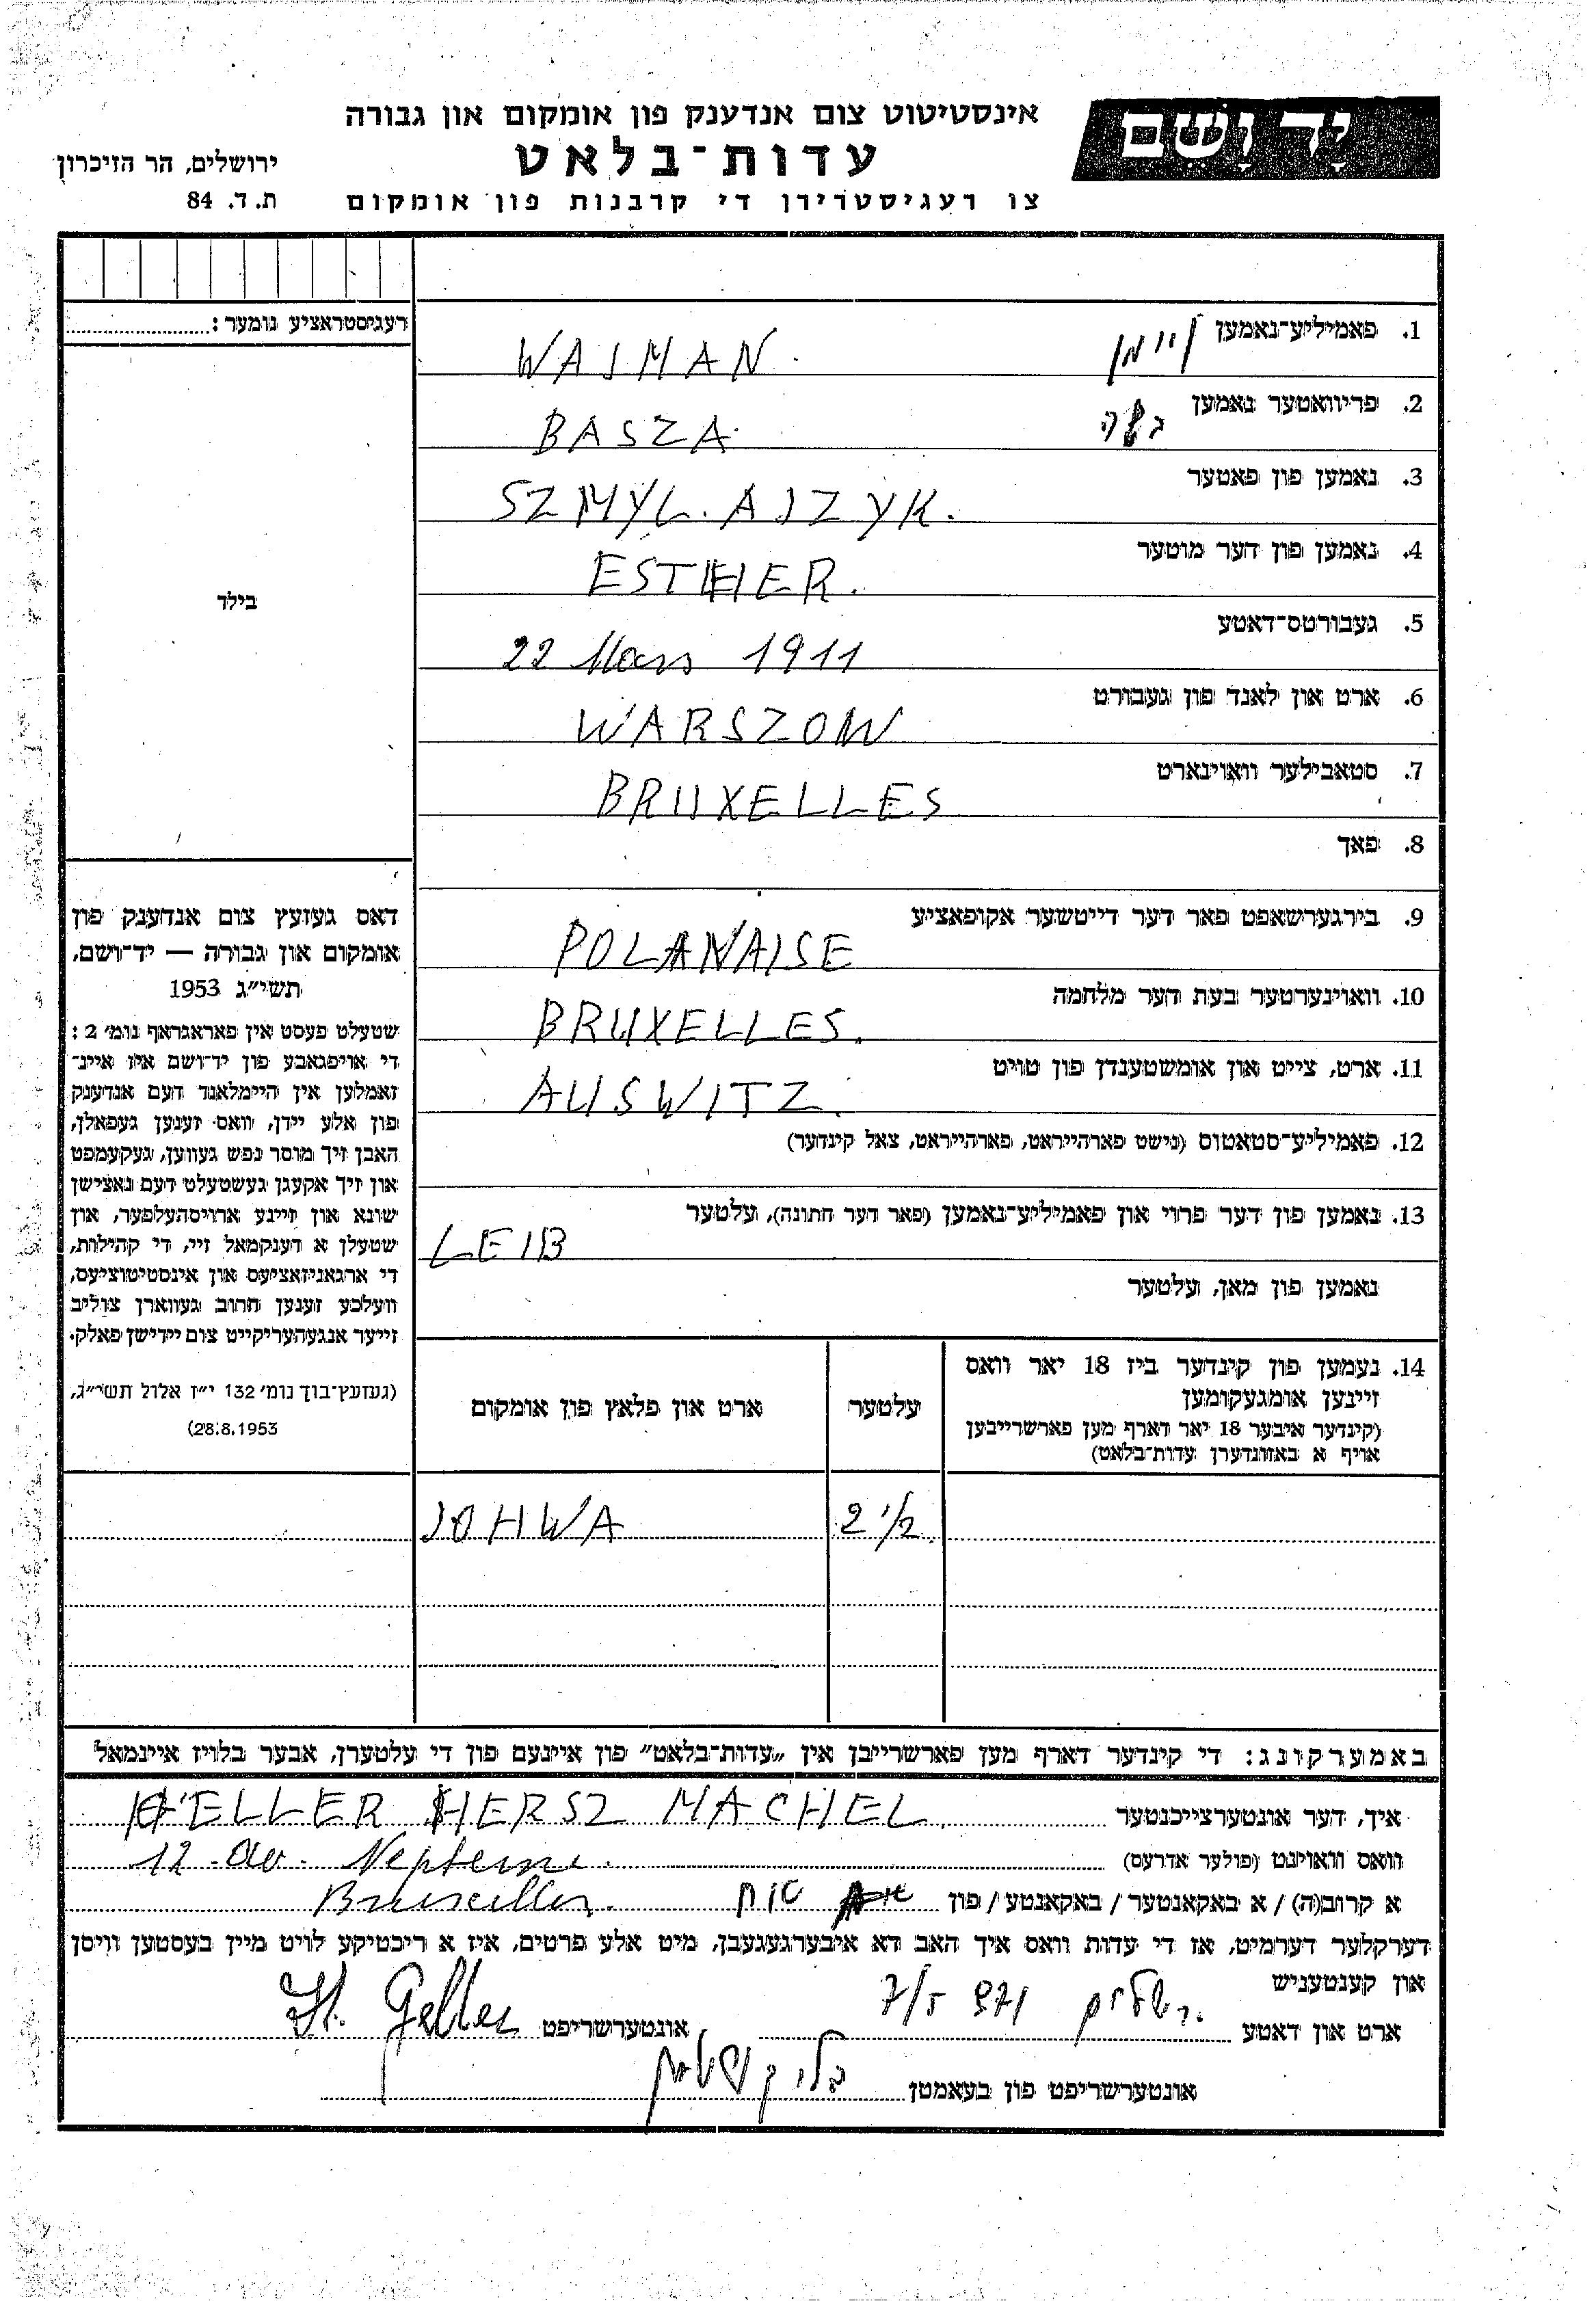 יד ושם
אינסטיטוט צום אנדענק פון אומקום און גבורה
עדות-בלאט
צו רעגיסטרירן די קרבנות פון אומקום
ירושלים, הר הזיכרון
ת. ד. 84
רעגיסטראציע נומער:
בילד
1. פאמיליע-נאמען ויימן WAJMAN.
2. פריוואטער נאמען בשה BASZA
3. נאמען פון פאטער SZMYL. AJZYK.
4. נאמען פון דער מוטער ESTHER.
5. געבורטס-דאטע 22 Mars 1911
6. ארט און לאנד פון געבורט WARSZOW
7. סטאבילער וואוינארט BRUXELLES
8. פאך
9. בירגערשאפט פאר דער דייטשער אקופאציע POLANAISE
10. וואוינערטער בעת דער מלחמה BRUXELLES.
11. ארט, צייט און אומשטענדן פון טויט AUSWITZ.
12. פאמיליע-סטאטוס (נישט פארהייראט, פארהייראט, צאל קינדער)
13. נאמען פון דער פרוי און פאמיליע-נאמען (פאר דער חתונה), עלטער
LEIB
נאמען פון מאן, עלטער
דאס געזעץ צום אנדענק פון
אומקום און גבורה — יד-ושם,
תשי״ג 1953
שטעלט פעסט אין פאראגראף נומ׳ 2:
די אויפגאבע פון יד-ושם איז איינ-
זאמלען אין היימלאנד דעם אנדענק
פון אלע יידן, וואס זענען געפאלן,
האבן זיך מוסר נפש געווען, געקעמפט
און זיך אקעגן געשטעלט דעם נאצישן
שונא און זיינע ארויסהעלפער, און
שטעלן א דענקמאל זיי, די קהילות,
די ארגאניזאציעס און אינסטיטוציעס,
וועלכע זענען חרוב געווארן צוליב
זייער אנגעהעריקייט צום יידישן פאלק.
(געזעץ-בוך נומ׳ 132 י״ז אלול תשי״ג,
28.8.1953)
14. נעמען פון קינדער ביז 18 יאר וואס
זיינען אומגעקומען
(קינדער איבער 18 יאר דארף מען פארשרייבן
אויף א באזונדערן עדות-בלאט)
עלטער
ארט און פלאץ פון אומקום
2 1/2. JOHWA
באמערקונג: די קינדער דארף מען פארשרייבן אין „עדות-בלאט״ פון איינעם פון די עלטערן, אבער בלויז איינמאל
איך, דער אונטערצייכנטער HELLER HERSZ MACHEL.
וואס וואוינט (פולער אדרעס) 12. Av. Neptune.
א קרוב(ה) / א באקאנטער / באקאנטע / פון Bruxelles.
דערקלער דערמיט, אז די עדות וואס איך האב דא איבערגעגעבן, מיט אלע פרטים, איז א ריכטיקע לויט מיין בעסטען וויסן
און קענטעניש
ארט און דאטע אונטערשריפט H. Geller
אונטערשריפט פון בעאמטן